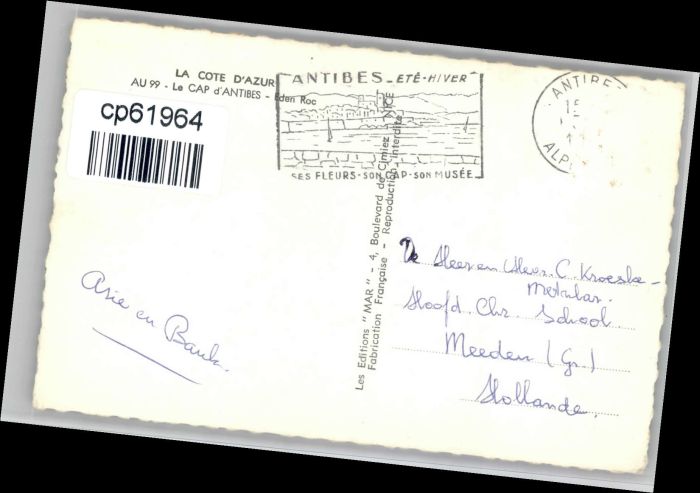 LA COTE D'AZUR
AU 99 - Le CAP d'ANTIBES - Eden Roc
cp61964
ANTIBES - ETÉ-HIVER
SES FLEURS-SON CAP-SON MUSÉE
ANTIBES
15
ALP
Les Editions "MAR" - 4, Boulevard de Cimiez - NICE
Fabrication Française - Reproduction Interdite
De Heer en Mevr. C. Kroeske-
Hoofd Chr. School
Meeden (Gr.)
Hollande.
en